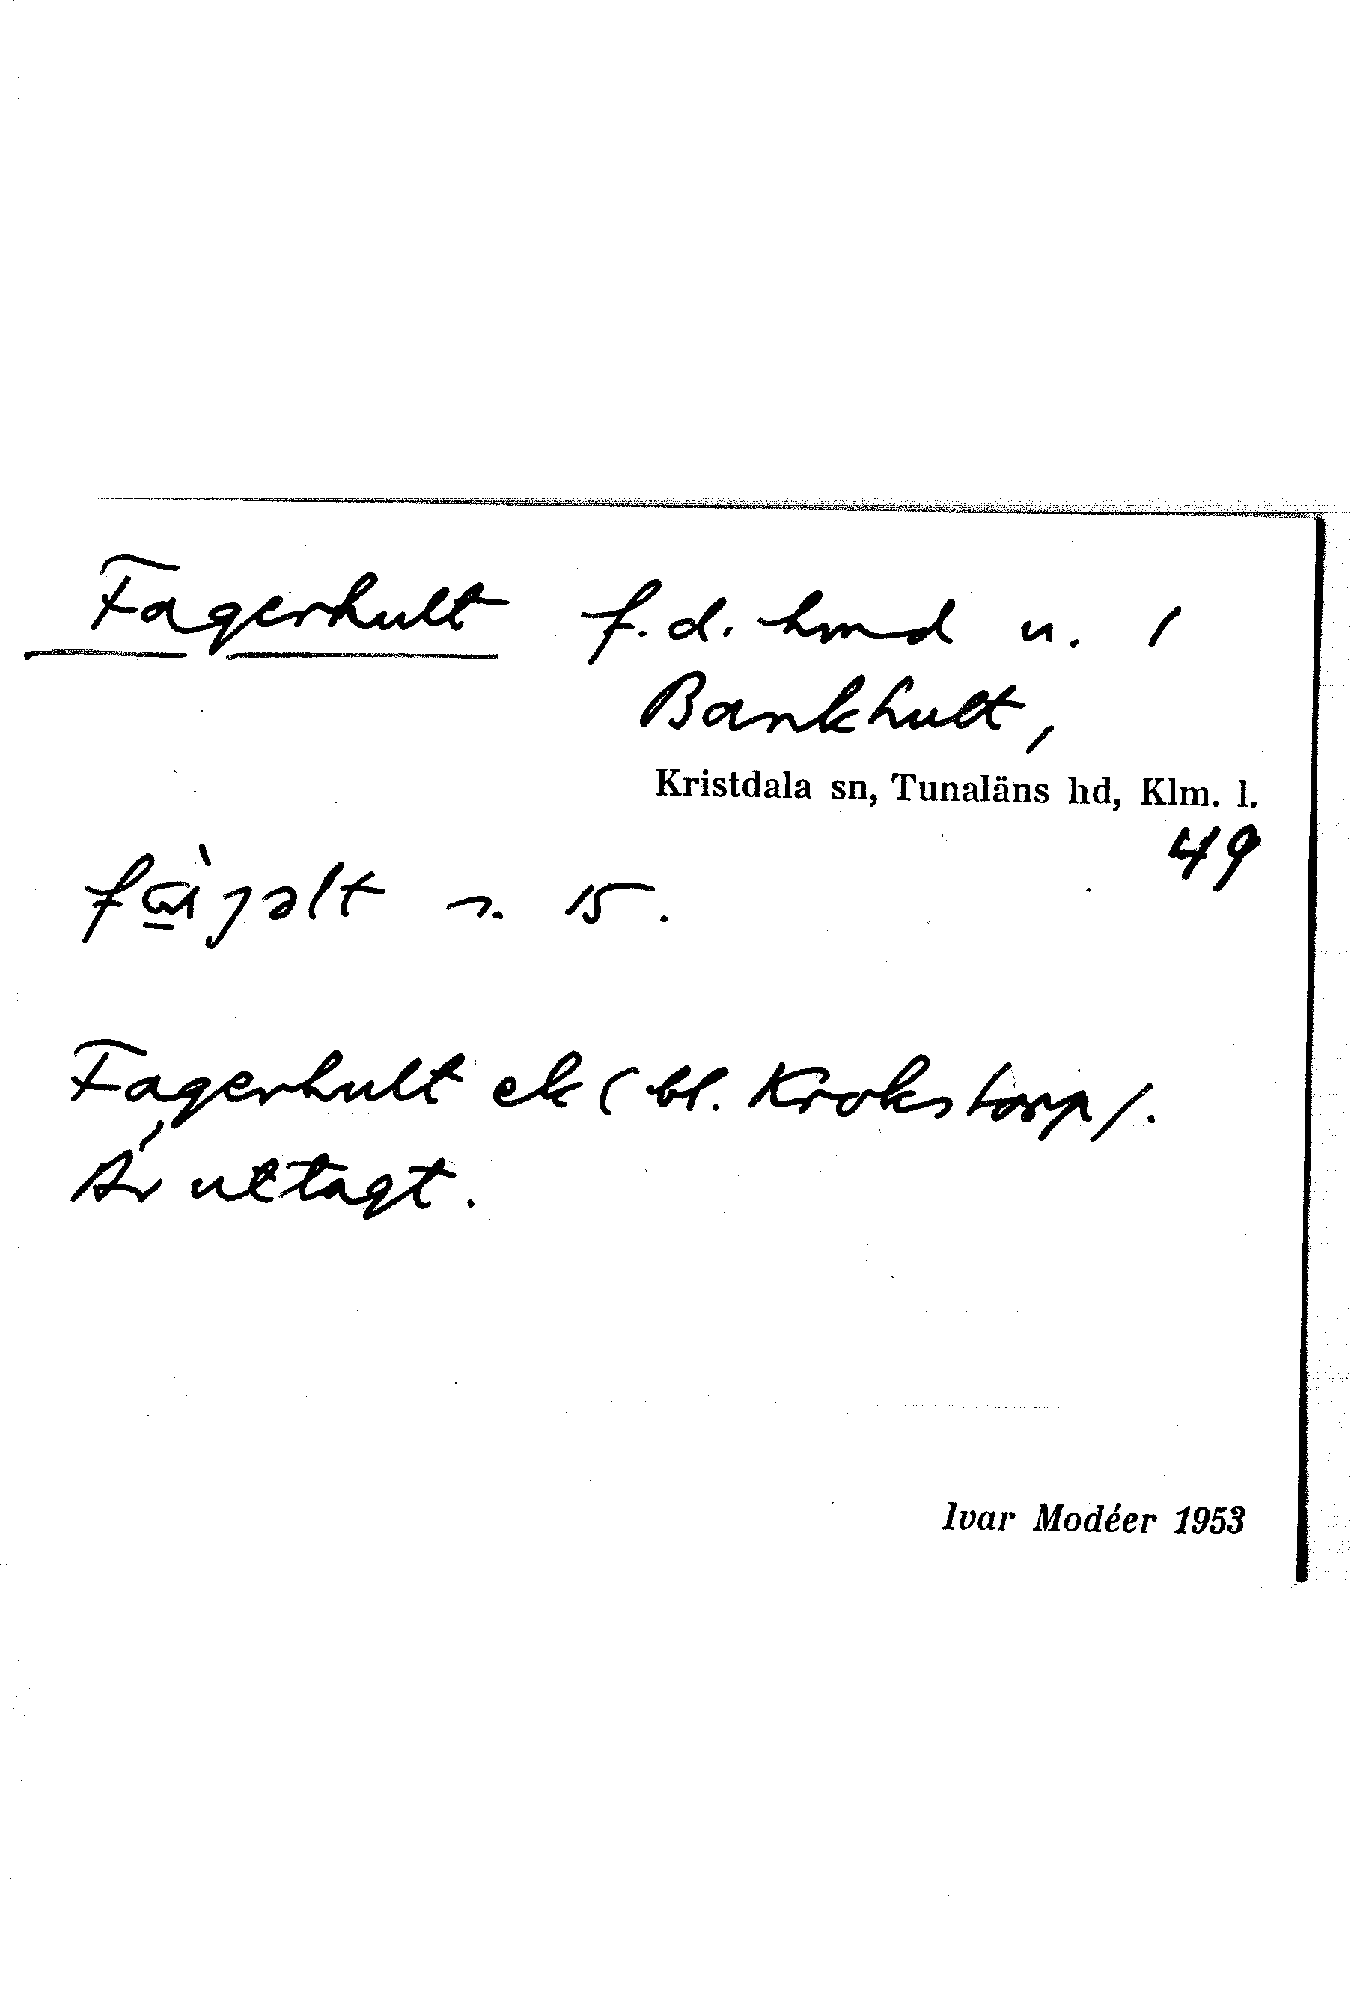 Fagerhult f.d. hmd u. 1
Bankhult,
Kristdala sn, Tunaläns hd, Klm. l.
49
s. 15.
Fagerhult ek (bl. Krokstorp).
Är uttagt.
Ivar Modéer 1953